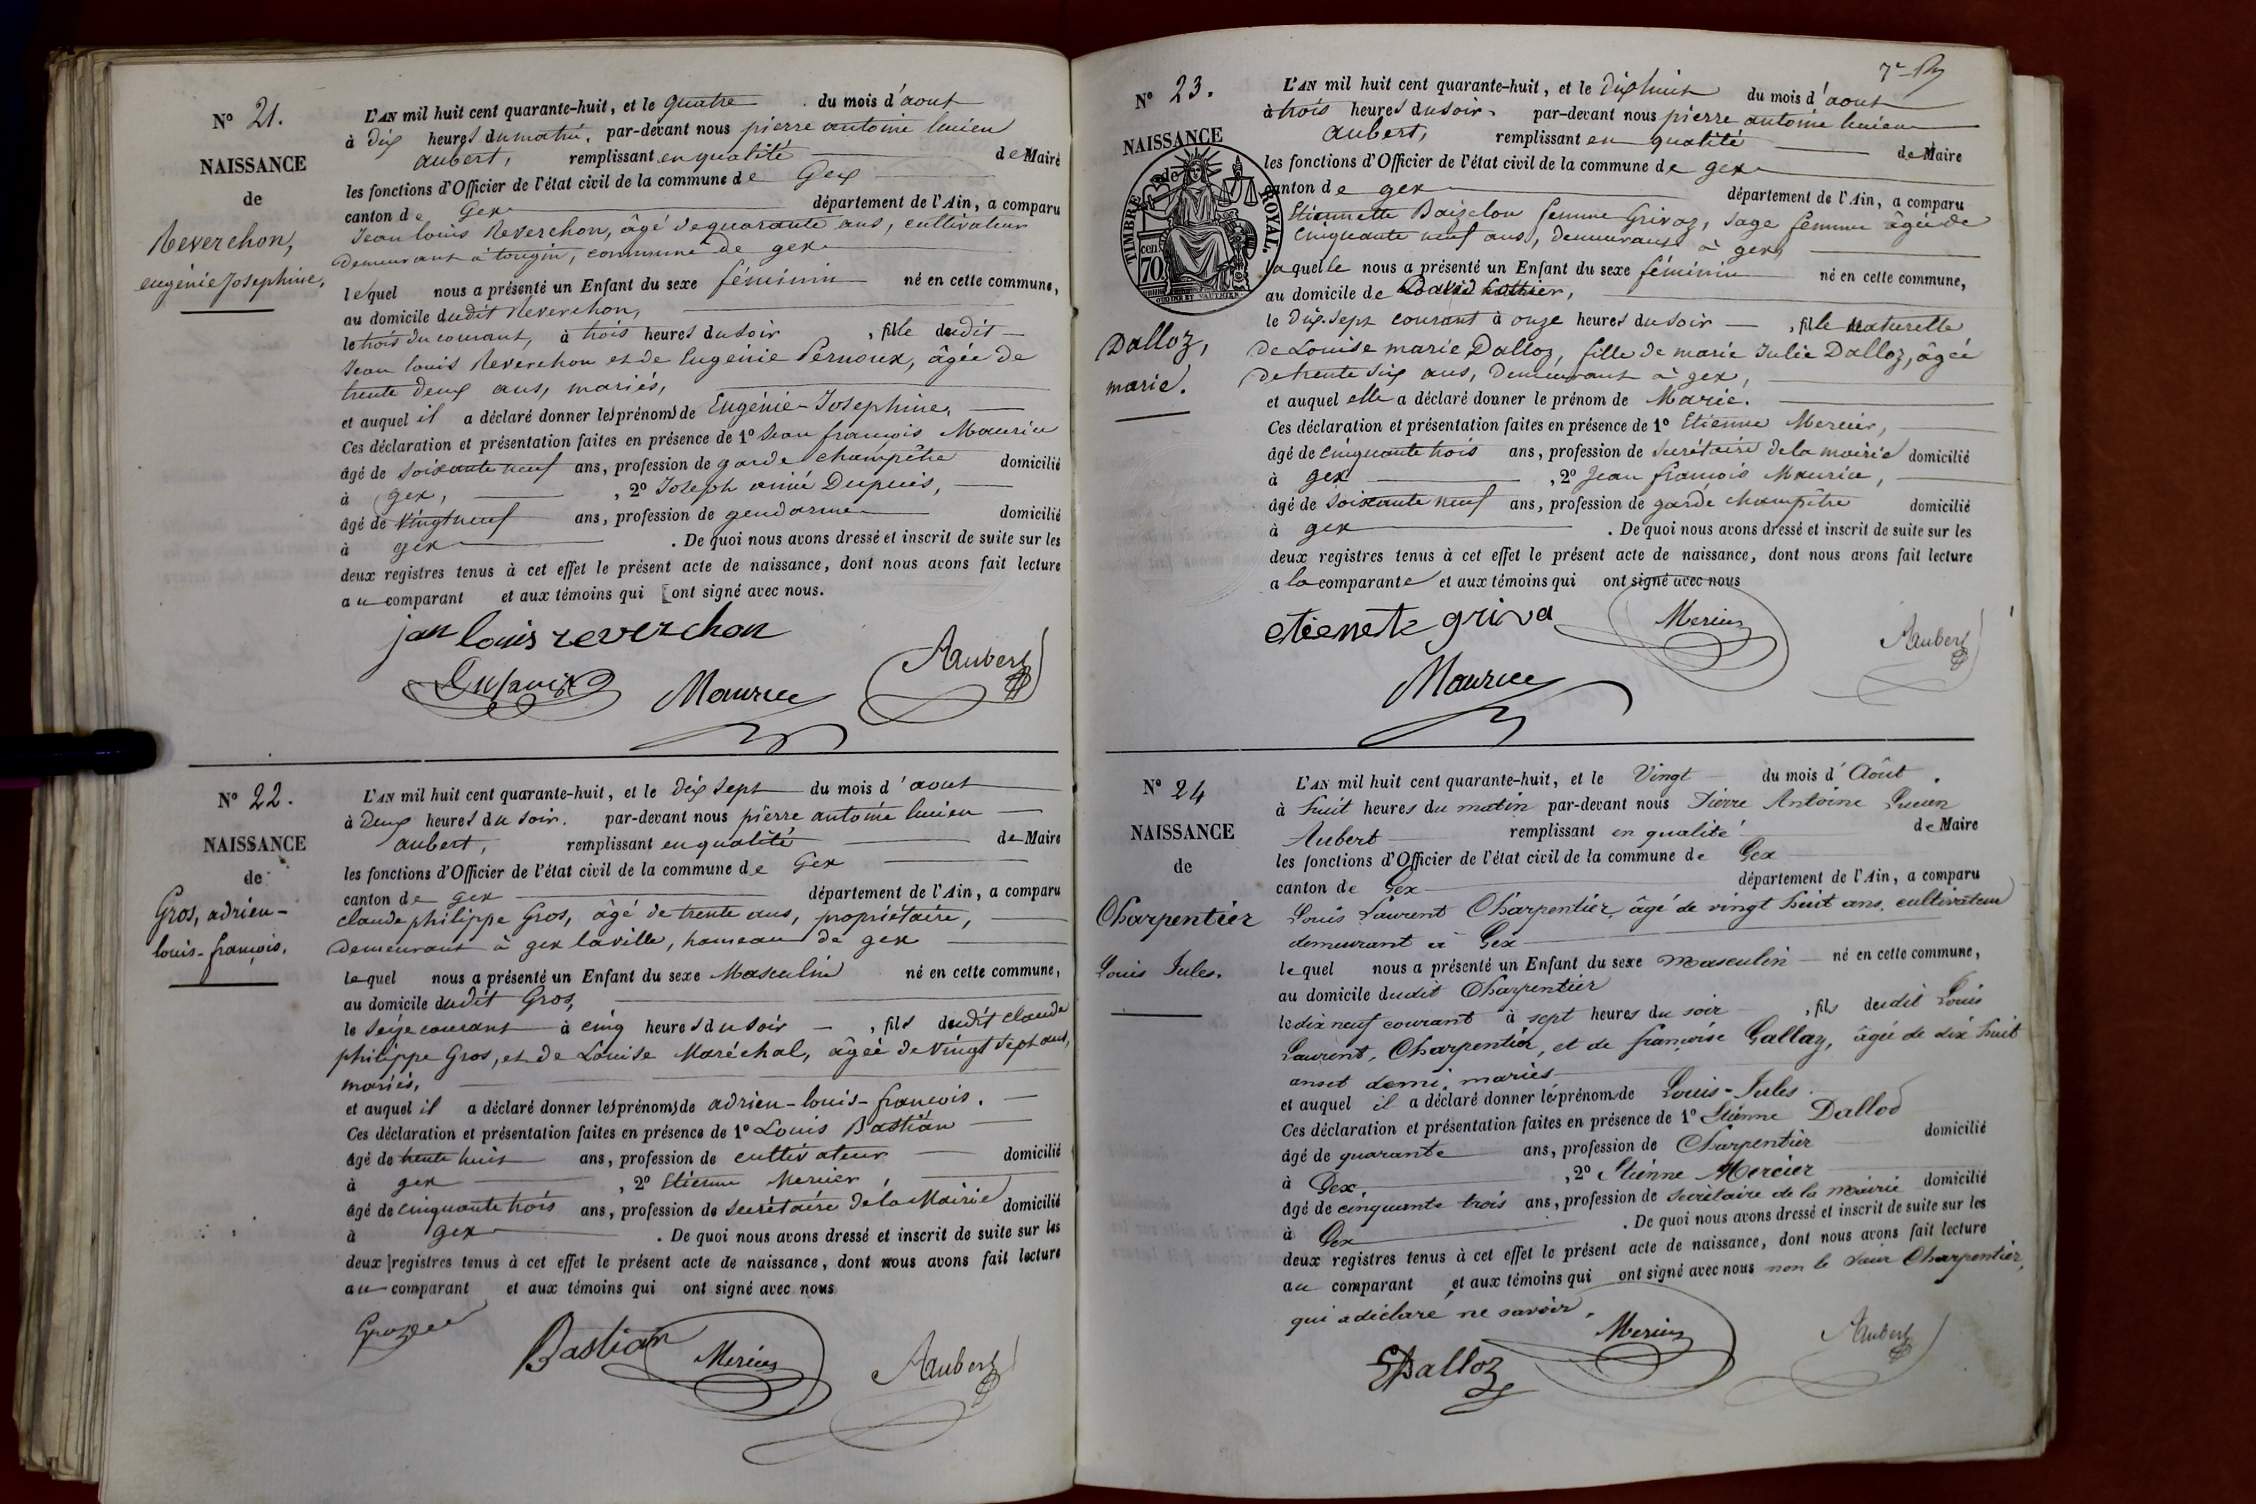 N° 21.
NAISSANCE
de
Reverchon,
eugénie Josephine,
L'AN mil huit cent quarante-huit, et le quatre du mois d'aout
à dix heures du matin, par-devant nous pierre antoine lucien
aubert, remplissant en qualité de Maire
les fonctions d'Officier de l'état civil de la commune de Gex
canton de Gex département de l'Ain, a comparu
Jean louis Reverchon, âgé de quarante ans, cultivateur
demeurant à tougin, commune de gex
lequel nous a présenté un Enfant du sexe féminin né en cette commune,
au domicile dudit Reverchon,
le trois du courant, à trois heures du soir , fille dudit
Jean louis Reverchon et de Eugénie Pernoux, âgée de
trente deux ans, mariés,
et auquel il a déclaré donner les prénoms de Eugénie-Josephine,
Ces déclaration et présentation faites en présence de 1° Jean françois Maurice
âgé de soixante neuf ans, profession de garde champêtre domicilié
à gex, , 2° Joseph aimé Dupuis,
âgé de vingt neuf ans, profession de gendarme domicilié
à gex . De quoi nous avons dressé et inscrit de suite sur les
deux registres tenus à cet effet le présent acte de naissance, dont nous avons fait lecture
au comparant et aux témoins qui ont signé avec nous.
jan louis reverchon
Aubert
Maurice
N° 22.
NAISSANCE
de
Gros, adrien-
louis-françois.
L'AN mil huit cent quarante-huit, et le dix sept du mois d'aout
à deux heures du soir. par-devant nous pierre antoine lucien
aubert, remplissant en qualité de Maire
les fonctions d'Officier de l'état civil de la commune de Gex
canton de gex département de l'Ain, a comparu
claude philippe Gros, âgé de trente ans, propriétaire,
demeurant à gex laville, hameau de gex
lequel nous a présenté un Enfant du sexe Masculin né en cette commune,
au domicile dudit Gros,
le seize courant à cinq heures du soir , fils dudit claude
philippe Gros, et de Louise Maréchal, âgée de vingt sept ans,
mariés,
et auquel il a déclaré donner les prénoms de adrien-louis-françois.
Ces déclaration et présentation faites en présence de 1° Louis Bastian
âgé de trente huit ans, profession de cultivateur domicilié
à gex , 2° Etienne Mercier,
âgé de cinquante trois ans, profession de secrétaire de la Mairie domicilié
à gex . De quoi nous avons dressé et inscrit de suite sur les
deux registres tenus à cet effet le présent acte de naissance, dont nous avons fait lecture
au comparant et aux témoins qui ont signé avec nous
Bastian Mercier Aubert
N° 23.
NAISSANCE
de
TIMBRE ROYAL.
cen 70
Dalloz,
marie.
L'AN mil huit cent quarante-huit, et le dix huit du mois d'aout
à trois heures du soir. par-devant nous pierre antoine lucien
aubert, remplissant en qualité de Maire
les fonctions d'Officier de l'état civil de la commune de gex
canton de gex département de l'Ain, a comparu
Etiennette Baizelon femme Grivaz, sage femme âgée de
cinquante neuf ans, demeurant à gex,
laquelle nous a présenté un Enfant du sexe féminin né en cette commune,
au domicile de David
le dix-sept courant à onze heures du soir , fille naturelle
de Louise marie Dalloz, fille de marie Julie Dalloz, âgée
de trente six ans, demeurant à gex,
et auquel elle a déclaré donner le prénom de Marie.
Ces déclaration et présentation faites en présence de 1° Etienne Mercier,
âgé de cinquante trois ans, profession de secrétaire de la mairie domicilié
à gex , 2° Jean françois Maurice,
âgé de soixante neuf ans, profession de garde champêtre domicilié
à gex . De quoi nous avons dressé et inscrit de suite sur les
deux registres tenus à cet effet le présent acte de naissance, dont nous avons fait lecture
a la comparante et aux témoins qui ont signé avec nous
etienete griva Mercier Aubert
Maurice
N° 24
NAISSANCE
de
Charpentier
Louis Jules.
L'AN mil huit cent quarante-huit, et le Vingt du mois d'Août.
à huit heures du matin par-devant nous Pierre Antoine Lucien
Aubert remplissant en qualité de Maire
les fonctions d'Officier de l'état civil de la commune de Gex
canton de Gex département de l'Ain, a comparu
Louis Laurent Charpentier, âgé de vingt huit ans, cultivateur
demeurant à Gex
lequel nous a présenté un Enfant du sexe masculin né en cette commune,
au domicile dudit Charpentier
le dix neuf courant à sept heures du soir , fils dudit Louis
Laurent, Charpentier, et de françoise Gallay, âgée de dix huit
ans et demi, mariés
et auquel il a déclaré donner les prénoms de Louis-Jules.
Ces déclaration et présentation faites en présence de 1° Etienne Dalloz
âgé de quarante ans, profession de Charpentier domicilié
à Gex, , 2° Etienne Mercier
âgé de cinquante trois ans, profession de secrétaire de la mairie domicilié
à Gex . De quoi nous avons dressé et inscrit de suite sur les
deux registres tenus à cet effet le présent acte de naissance, dont nous avons fait lecture
au comparant et aux témoins qui ont signé avec nous non le sieur Charpentier,
qui a déclaré ne savoir.
EDalloz Mercier Aubert